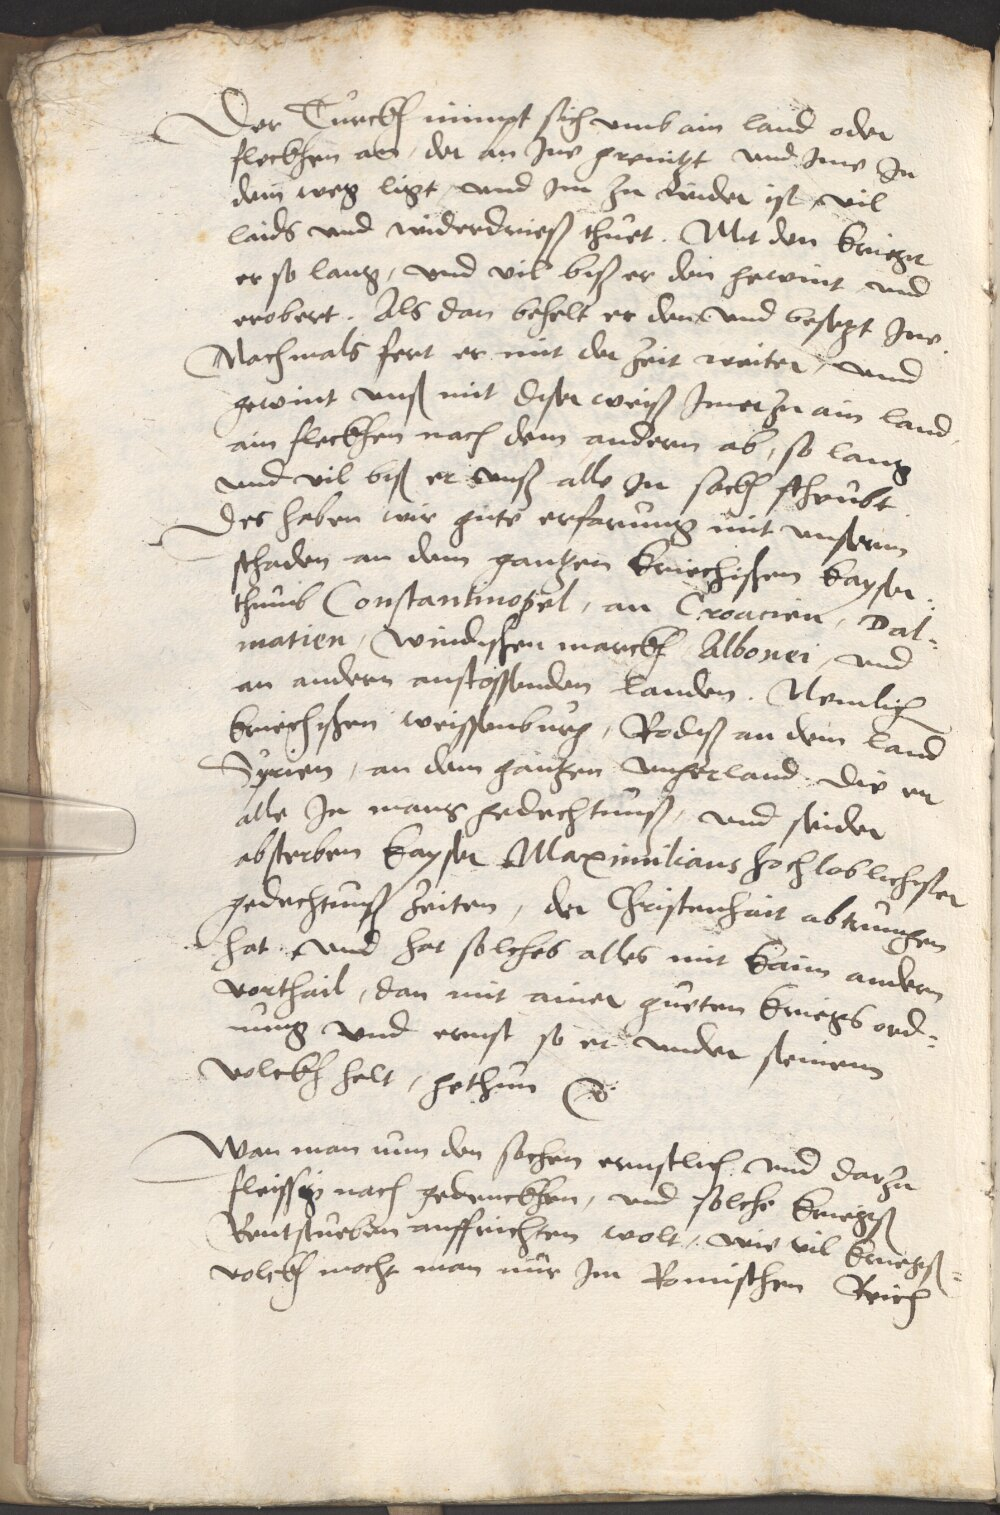 Der Turckh nimpt sich umb ain land oder
fleckhen an, der an Jne grenitzt und Jme In
dem weg ligt, und Jm zu wider ist, vil
laids und widerdrieß thuet. Mit den kriegt
er so lang, und vil biß er den gewint und
erobert. Als dan behelt er den und besetzt Jne.
Nachmals fert er mit der Zeit weiter, und
gewint unß mit diser weiß Jmerzu ain land,
ain fleckhen nach dem andern ab, so lang
und vil biß er unß alle In sackh schubt.
Des haben wir guete erfarung mit unserm
schaden an dem gantzen kriechischen kayser-
thumb Constantinopel, an Croacien, Dal-
matien, Windischen marckh Albonei, und
an andern anstossenden landen. Nemlich
kriechischen weissenburg, Rodiß an dem land
Syrien, an dem gantzen ungerland. Die er
alle In mans gedechtnuß, und seider
absterben kayser Maximilians hochloblichister
gedechtnuß Zeiten, der Christenhait abtrungen
hat. Und hat solches alles mit kaim andern
vorthail, dan mit ainer gueten kriegs ord-
nung und ernst so er under seinem
volckh helt, gethun
Wan man nun den sachen ernstlich und darzu
fleissig nach gedenckhen, und solche kriegß
auffrichten wolt, wie vil kriegß-
volckh mocht man nur Im Romischen Reich